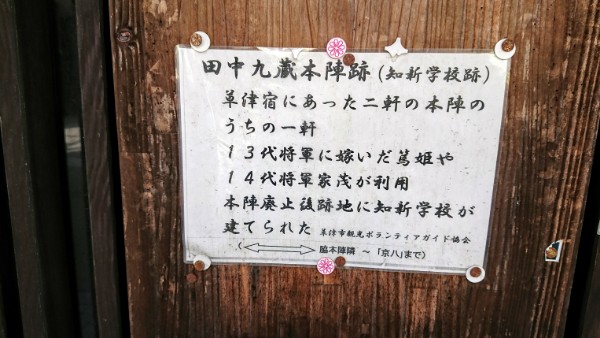 田中九蔵本陣跡(知新学校跡)
草津宿にあった二軒の本陣の
うちの一軒
13代将軍に嫁いだ篤姫や
14代将軍家茂が利用
本陣廃止後跡地に知新学校が
建てられた 草津市観光ボランティアガイド協会
(⟷ 脇本陣隣 ~「京八」まで)